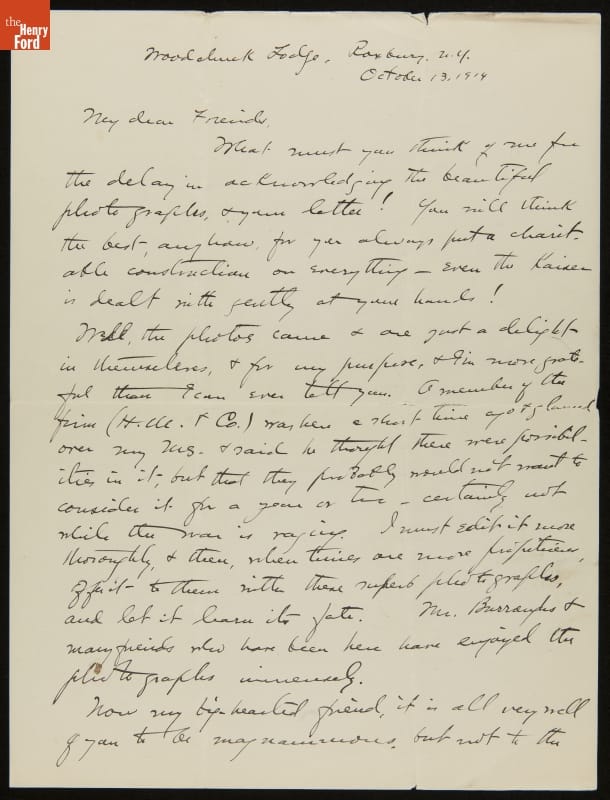 the
Henry
Ford
Woodchuck Lodge, Roxbury, N.Y.
October 13, 1914
My dear Friends,
What must you think of me for
the delay in acknowledging the beautiful
photographs, & your letter! You will think
the best, anyhow, for you always put a charit-
able construction on everything — even the Kaiser
is dealt with gently at your hands!
Well, the photos came & are just a delight
in themselves, & for my purpose, & I'm more grate-
ful than I can ever tell you. A member of the
firm (H. M. & Co.) was here a short time ago & glanced
over my Ms. & said he thought there were possibil-
ities in it, but that they probably would not want to
consider it for a year or two — certainly not
while the war is raging. I must edit it more
thoroughly, & then, when times are more propitious,
offer it to them with these superb photographs,
and let it learn its fate. Mr. Burroughs &
many friends who have been here have enjoyed the
photographs immensely.
Now my big-hearted friend, it is all very well
of you to be magnanimous, but not to the